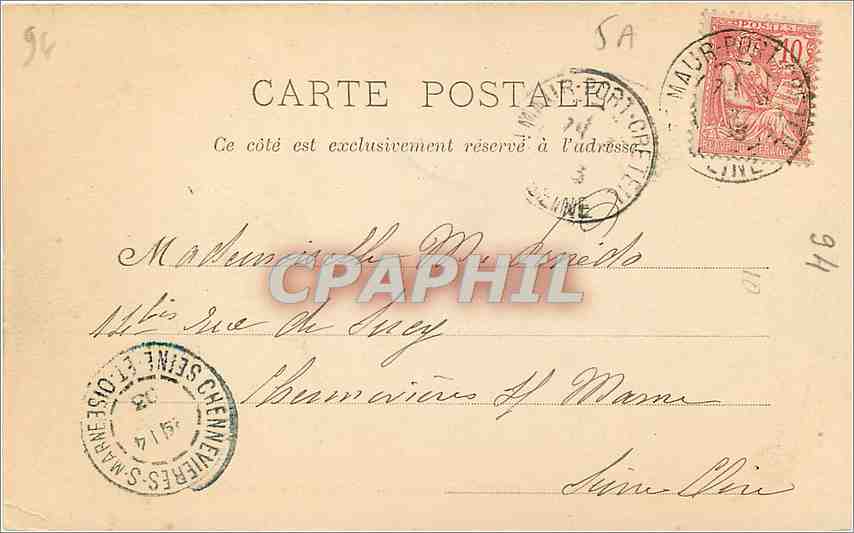 94
5A
POSTES
10
CARTE POSTALE
Ce côté est exclusivement réservé à l'adresse
MAUR-PORT-CRETEIL
14
3
SEINE
MAUR-PORT-CRETEIL
SEINE
94
10
Mademoiselle
CPAPHIL
14bis rue de Sucy
Chennevières s/ Marne
Seine Oise
CHENNEVIERES-S-MARNE
SEINE-ET-OISE
14
03